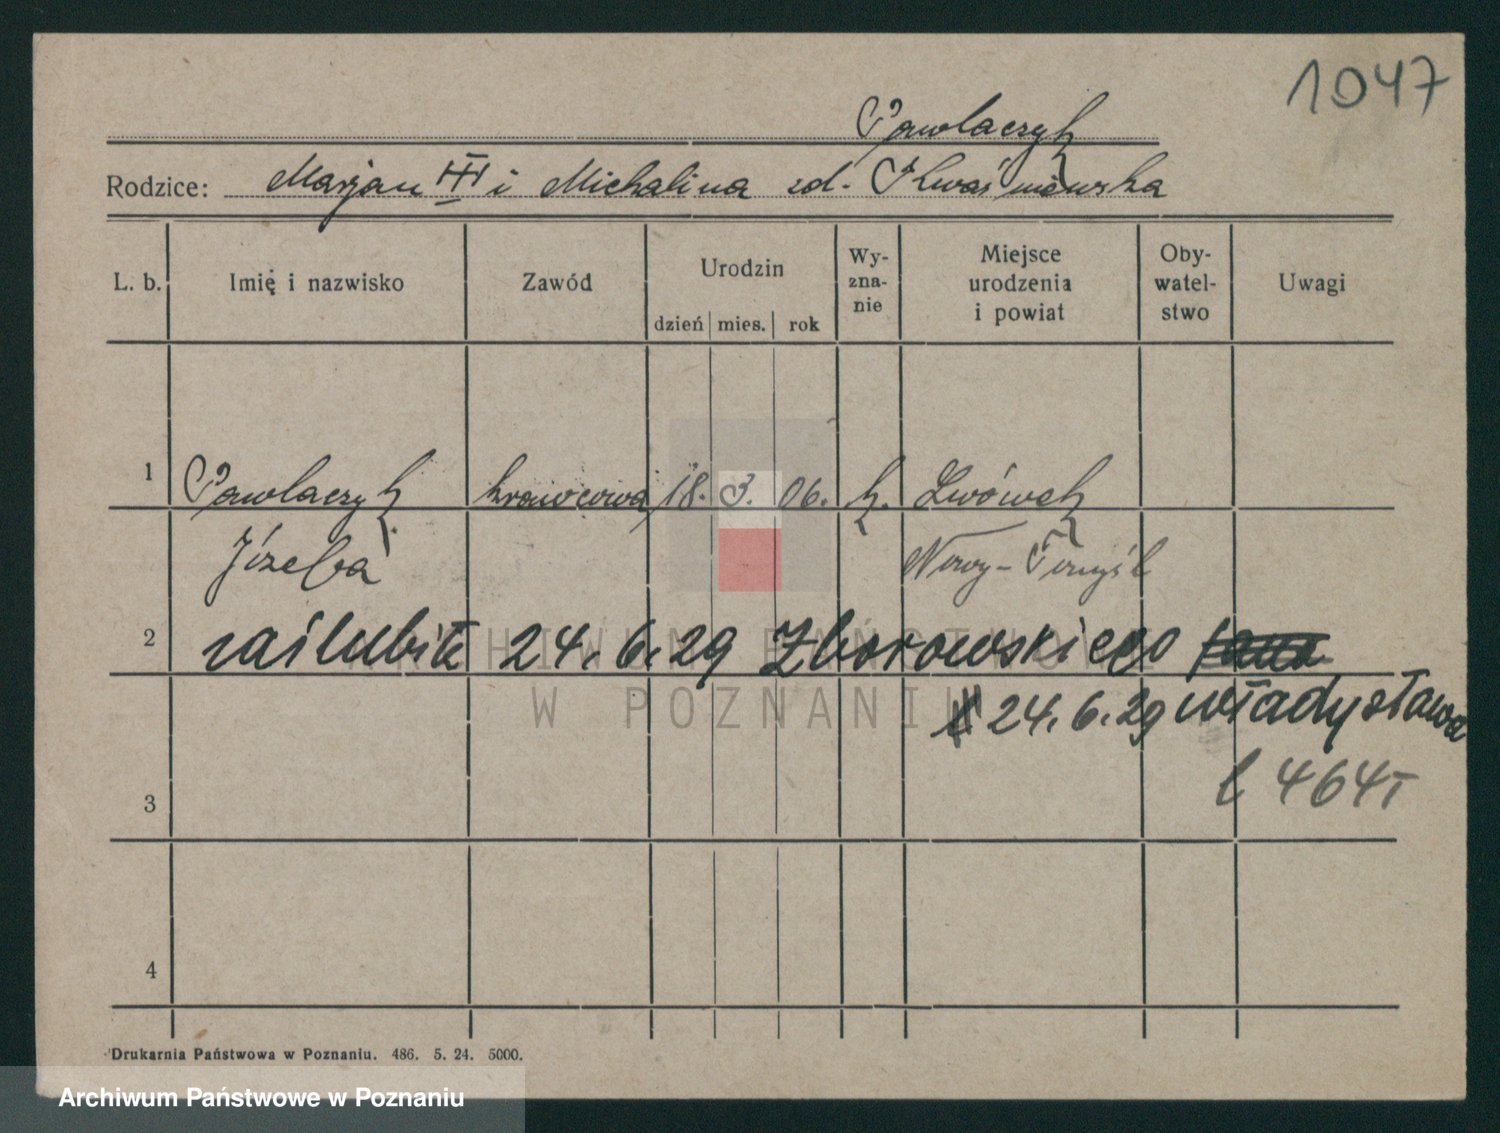 1047
Pawlaczyk
Rodzice: Marjan III i Michalina zd. Kwaśniewska
L. b. Imię i nazwisko Zawód Urodzin Wy-zna-nie Miejsce urodzenia i powiat Oby-watel-stwo Uwagi
dzień mies. rok
1 Pawlaczyk krawcowa 18. 3. 06. k. Lwówek
Józefa Nowy-Tomyśl
2 zaślubiła 24.6.29 Zborowskiego
24.6.29 Władysława
3
4
ARCHIWUM PAŃSTWOWE
W POZNANIU
Drukarnia Państwowa w Poznaniu. 486. 5. 24. 5000.
Archiwum Państwowe w Poznaniu